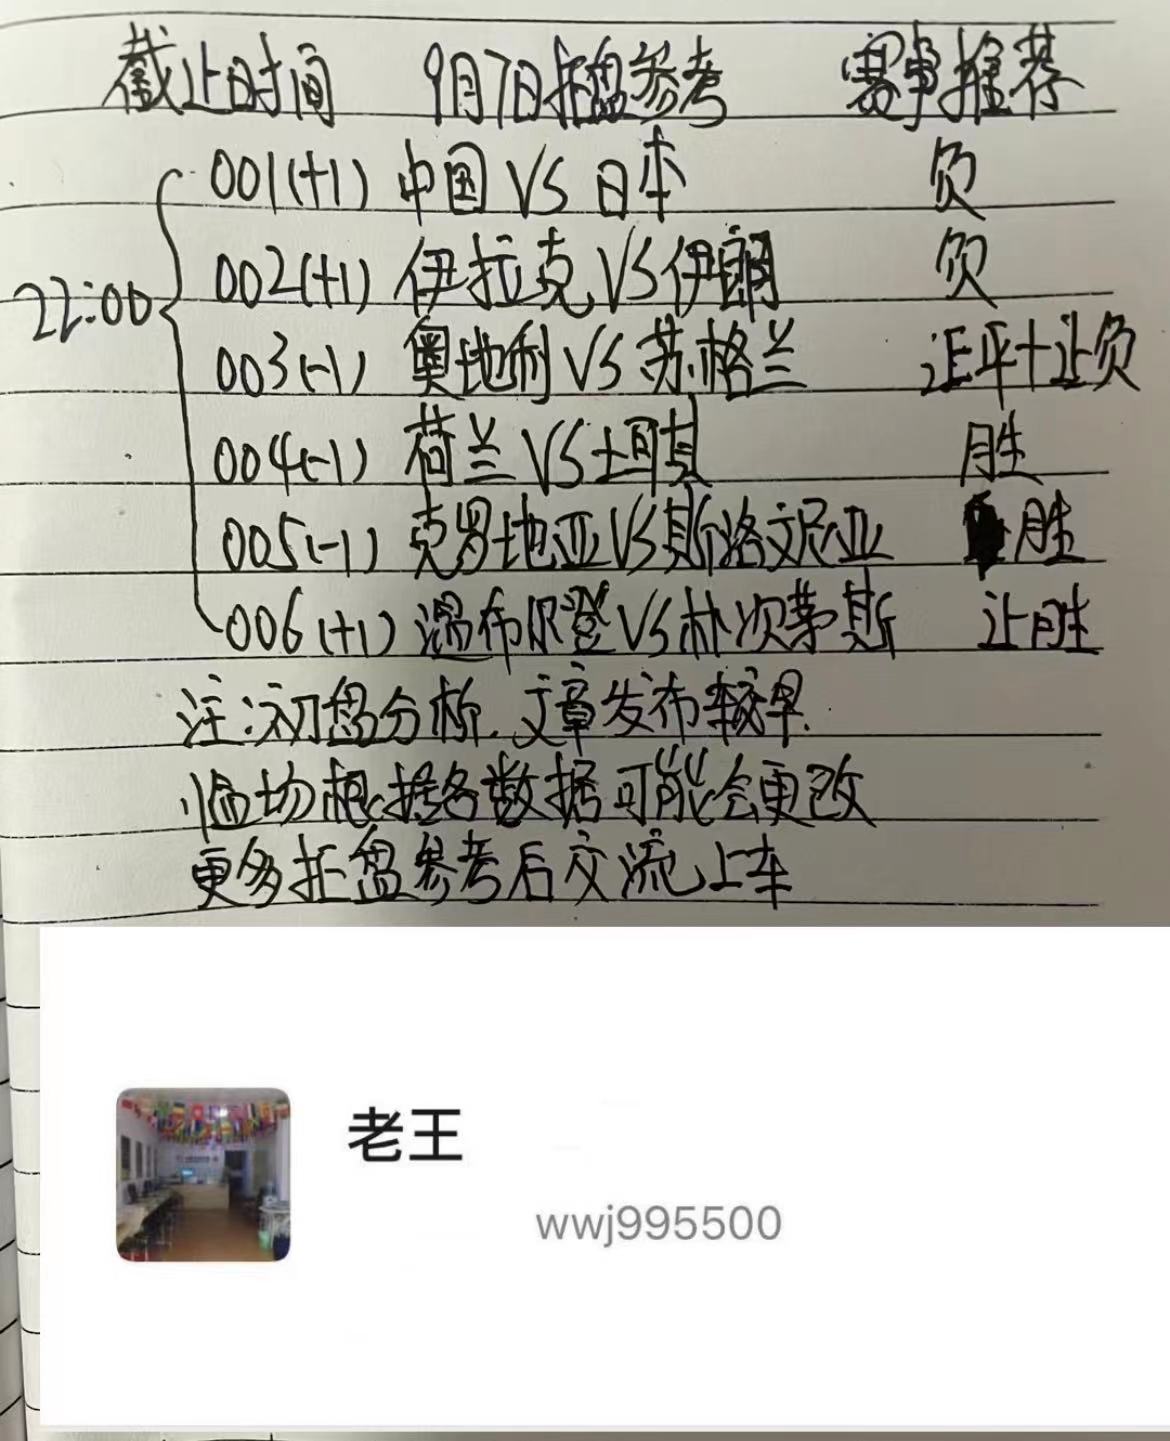 截止时间 9月7日扫盘参考 赛事推荐
22:00
001(+1) 中国 VS 日本 负
002(+1) 伊拉克 VS 伊朗 负
003(-1) 奥地利 VS 苏格兰 让平+让负
004(-1) 荷兰 VS 土耳其 胜
005(-1) 克罗地亚 VS 斯洛文尼亚 胜
006(+1) 温布尔登 VS 朴次茅斯 让胜
注:初盘分析.文章发布较早.
临场根据各数据可能会更改
更多扫盘参考后交流上车
老王
wwj995500